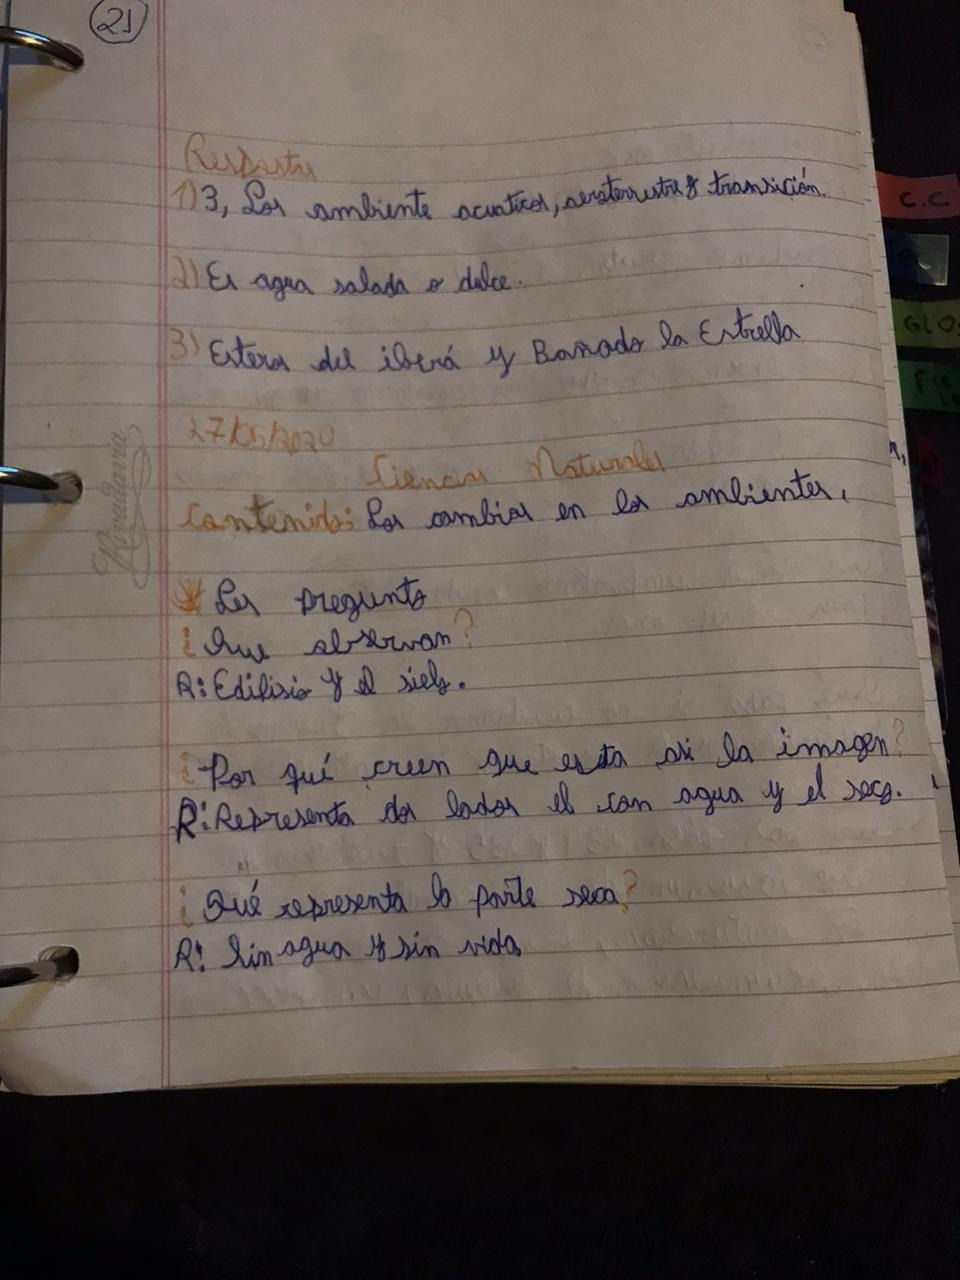 21
Respustas
1) 3, Los ambiente acuaticos, aeroterrestre y transición.
2) Es agua salada o dulce.
3) Esteros del iberá y Bañado la Estrella
27/05/2020
Ciencias Naturales
Contenido: Los cambios en los ambientes.
Les pregunto
¿Que observan?
R: Edifisio y el sielo.
¿Por qué creen que esta asi la imagen?
R: Representa dos lados el con agua y el seco.
¿Qué representa la parte seca?
R: Sin agua y sin vida
Rivadavia
C.C
GLO